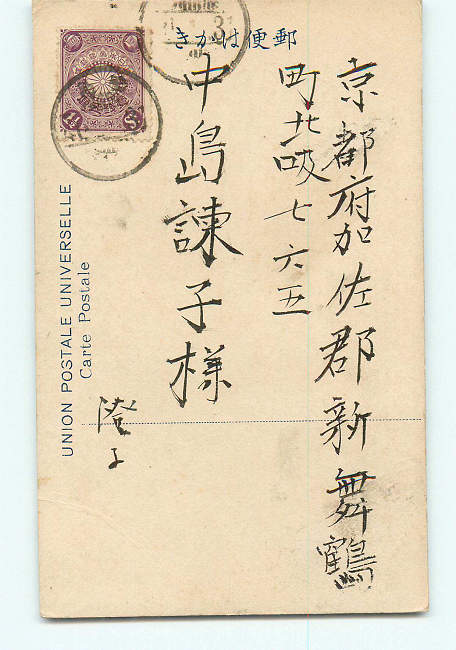 きかは便郵
京都府加佐郡新舞鶴
町北吸七六五
中島諫子様
澄子
UNION POSTALE UNIVERSELLE
Carte Postale
1½ Sn